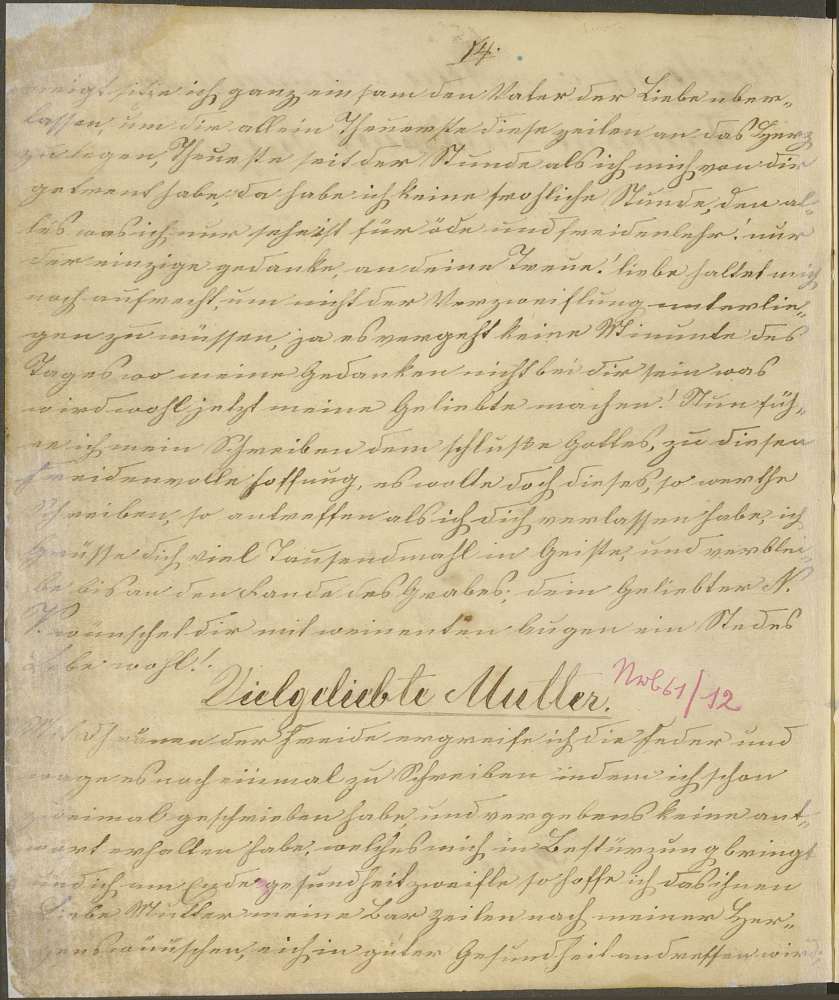 14.
neigt sitze ich ganz einsam den Vater der Liebe uber-
lassen, um die allein Theuerste diese zeilen an das Herz
zu legen, Theuerste seit der Stunde als ich mich von dir
getrent habe, da habe ich keine frohliche Stunde, den al-
les was ich nur sehe ist für öde und freidenlehr! nur
der einzige gedanke, an deine Treue! liebe haltet mich
noch aufrecht, um nicht der Verzweiflung unterlie-
gen zu müssen, ja es vergeht keine Minunte des
Tages wo meine Gedanken nicht bei dir sein was
wird wohl jetzt meine Geliebte machen! Nun füh-
re ich mein Schreiben dem schluße Gottes, zu diesen
freidenvolle hoffnug, es wolte doch dieses, so werthe
Schreiben, so antreffen als ich dich verlassen habe, ich
Grüsse dich viel Tausendmahl in Geiste, und verblei-
be bis an den Rande des Grabes, dein Geliebter N.
N. wünschet dir mit weinenten Augen ein Stedes
Lebe wohl!.
Vielgeliebte Mutter.
Nrb 61/12
Mit Thränen der Freide ergreife ich die Feder und
wage es noch einmal zu Schreiben indem ich schon
zweimal geschrieben habe, und vergebens keine ant-
wort erhalten habe, welches mich in Bestürzung bringt
und ich am Ende gesundheit zweifle so hoffe ich das ihnen
Liebe Mutter meine Bar zeilen nach meiner Her-
zens wünschen, eich in guter Gesundheit andreffen wird,